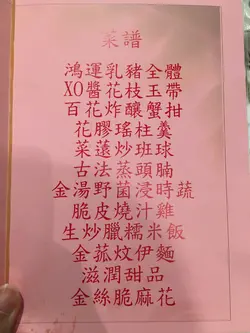 菜譜
鴻運乳豬全體
XO醬花枝玉帶
百花炸釀蟹拑
花膠瑤柱羹
菜薳炒班球
古法蒸頭腩
金湯野菌浸時蔬
脆皮燒汁雞
生炒臘糯米飯
金菰炆伊麵
滋潤甜品
金絲脆麻花